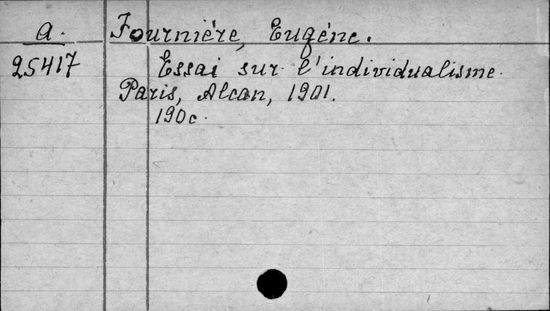 a. Fournière, Eugène.
25417 Essai sur l'individualisme.
Paris, Alcan, 1901.
190c.